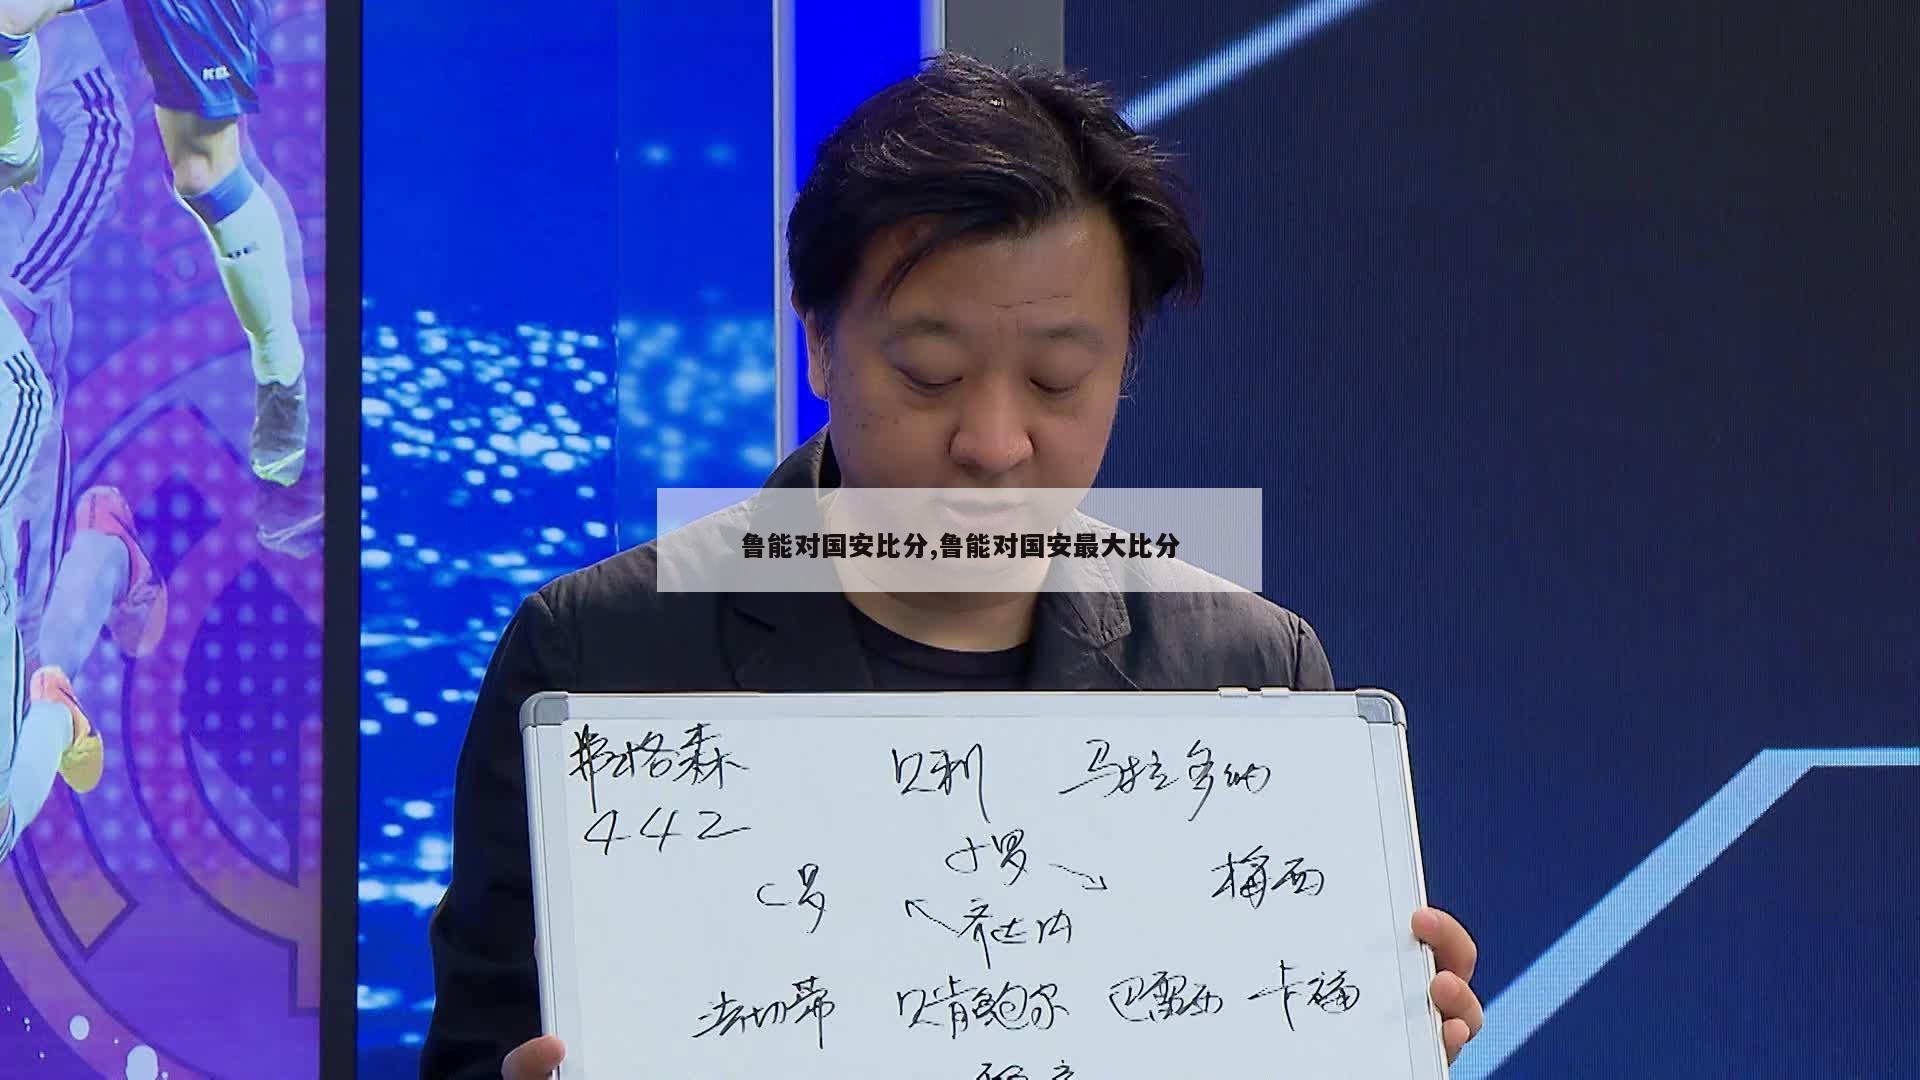 KEL
鲁能对国安比分,鲁能对国安最大比分
弗格森 贝利 马拉多纳
442
小罗
C罗 梅西
齐达内
法切蒂 贝肯鲍尔 巴雷西 卡福